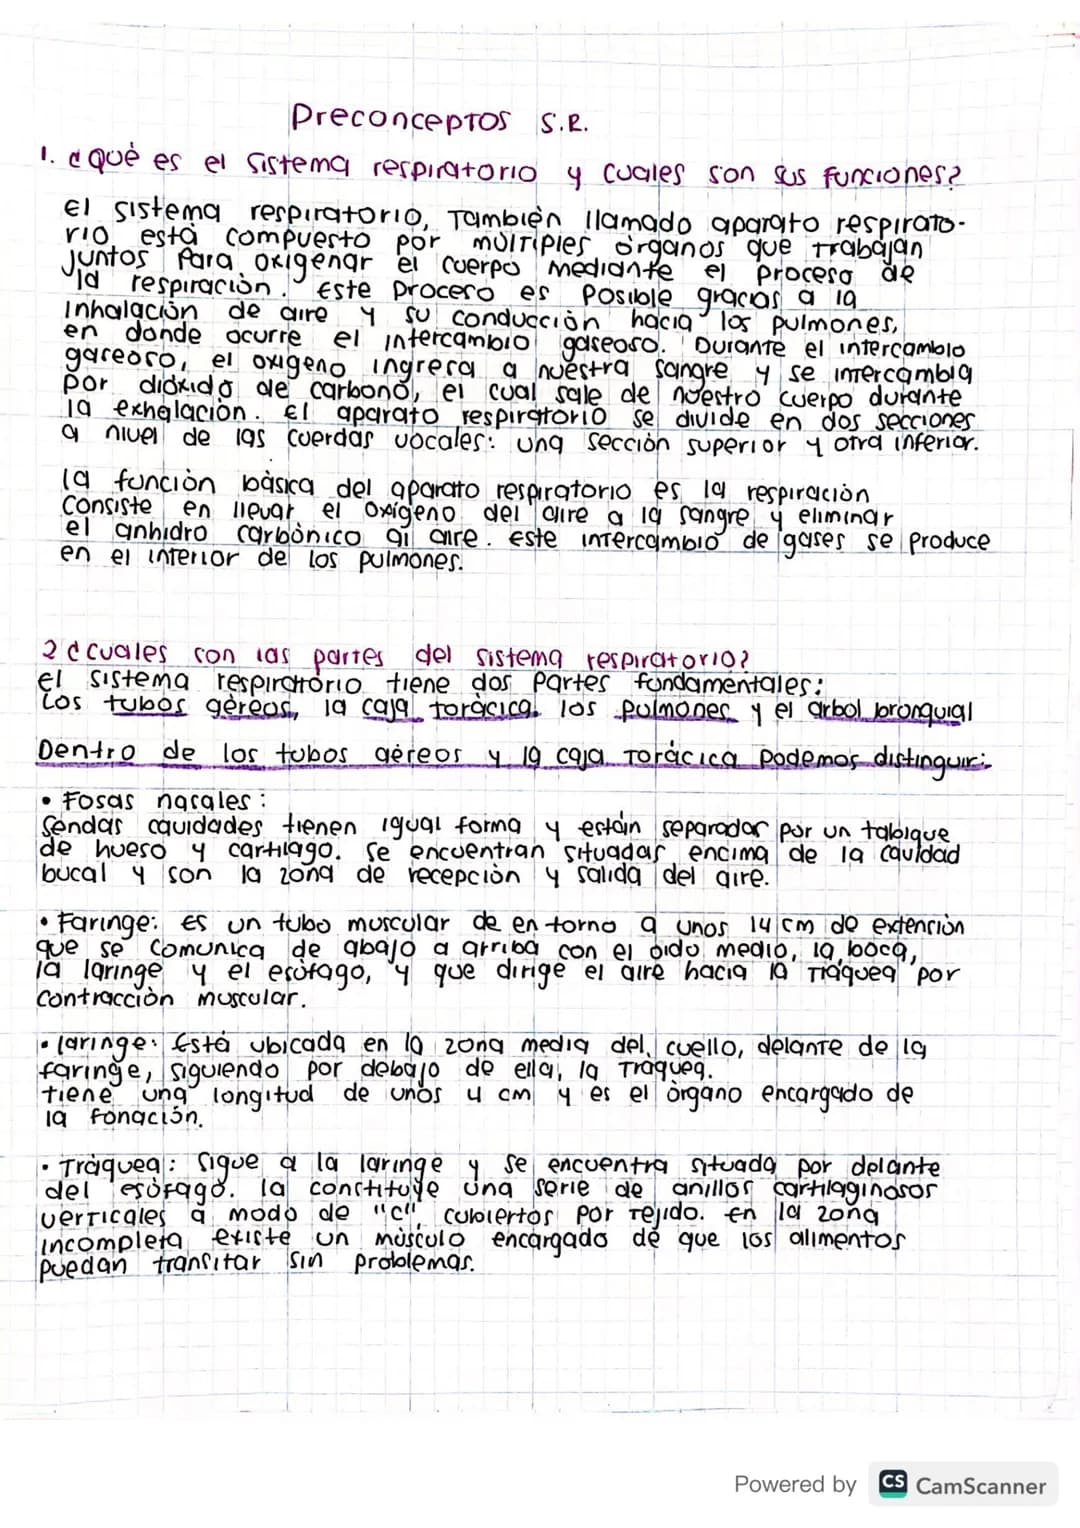 Preconceptos S.R.
1. ¿Què es el sistema respiratorio y cuales son sus funciones?
El sistema respiratorio, También llamado aparato respirato-
rio está compuesto por múltiples òrganos que trabajan
juntos para oxigenar el cuerpo mediante el proceso de
la respiraciòn. Este proceso es posible gracias a la
inhalaciòn de aire y su conducciòn hacia los pulmones,
en donde ocurre el intercambio gaseoso. Durante el intercambio
gaseoso, el oxigeno ingresa a nuestra sangre y se intercambia
por dióxido de carbono, el cual sale de nuestro cuerpo durante
la exhalaciòn. El aparato respiratorio se divide en dos secciones
a nivel de las cuerdas vocales: una secciòn superior y otra inferior.
la funciòn bàsica del aparato respiratorio es la respiraciòn
Consiste en llevar el oxígeno del aire a la sangre y eliminar
el anhidro carbònico al aire. Este intercambio de gases se produce
en el interior de los pulmones.
2 ¿cuales son las partes del sistema respiratorio?
El sistema respiratòrio tiene dos partes fundamentales:
Los tubos aèreos, la caja toràcica, los pulmones y el arbol bronquial
Dentro de los tubos aèreos y la caja Toràcica podemos distinguir:
• Fosas nasales:
Sendas cavidades tienen igual forma y estàn separadas por un tabique
de hueso y cartilago. se encuentran situadas encima de la cavidad
bucal y son la zona de recepciòn y salida del aire.
• Faringe: Es un tubo muscular de en torno a unos 14 cm de extenciòn
que se comunica de abajo a arriba con el oido medio, la boca,
la laringe y el esòfago, y que dirige el aire hacia la Tràquea por
contracciòn muscular.
• laringe: Està ubicada en la zona media del cuello, delante de la
faringe, siguiendo por debajo de ella, la Tràquea.
tiene una longitud de unos 4 cm y es el òrgano encargado de
la fonaciòn.
• Tràquea: Sigue a la laringe y se encuentra situada por delante
del esòfago. la constituye una serie de anillos cartilaginosos
verticales a modo de "C", cubiertos por Tejido. En la zona
incompleta existe un mùsculo encargado de que los alimentos
puedan transitar sin problemas.
Powered by CS CamScanner